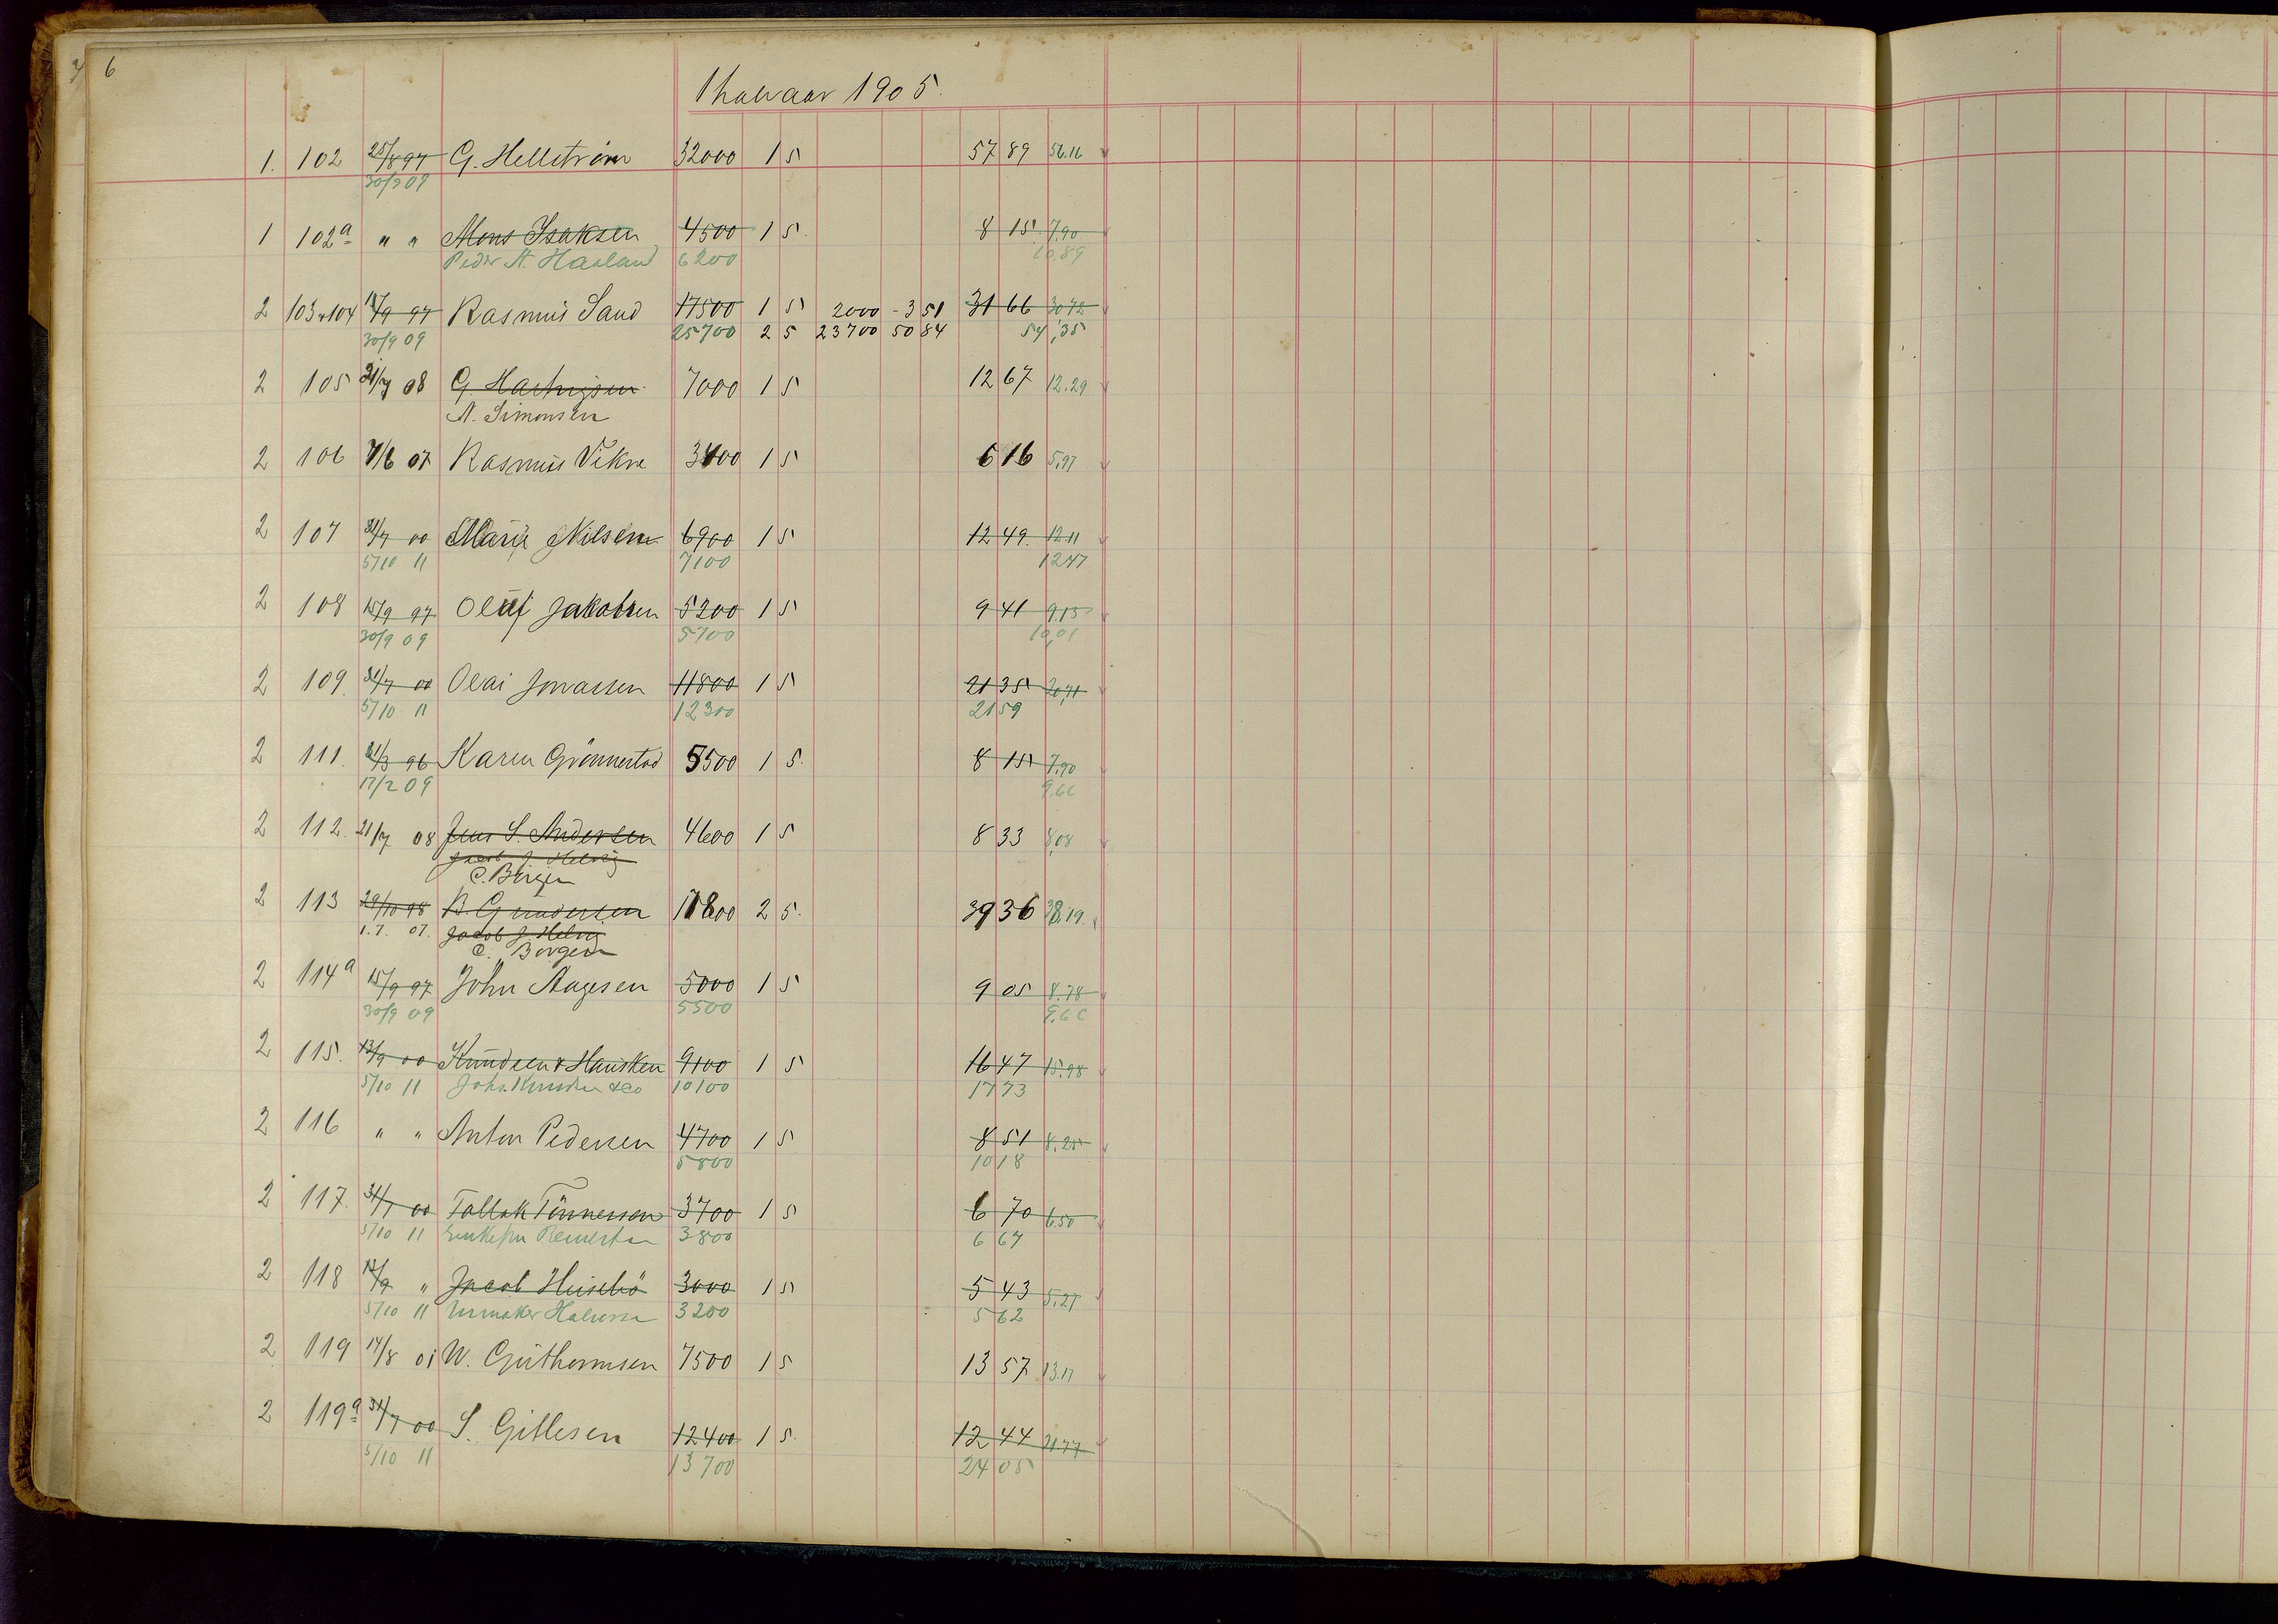 6
1 halvaar 1905.
1. 102 25/8 97 G. Hellström 32000 1 5 57 89 56.16
30/9 09
1 102a " " Mons Isaksen 4500 1 5. 8 15. 7,90
Peder A. Haaland 6200 10,89
2 103 & 104 15/9 97 Rasmus Sand 17500 1 5 2000 - 3 51 31 66 30.72
30/9 09 25700 2 5 23700 50 84 54,35
2 105 21/7 08 G. 7000 1 5 12 67 12.29
A. Simonsen
2 106 7/6 07 Rasmus Vikre 3400 1 5 6 16 5.97
2 107 31/7 00 Marie Nilsen 6900 1 5 12 49. 12.11
5/10 11 7100 1247
2 108 15/9 97 Oluf Jakobsen 5200 1 5 9 41 9.13
30/9 09 5700 10,01
2 109. 31/7 00 Olai Jonassen 11800 1 5 21 35 20,71
5/10 11 12300 21 59
2 111. 31/3 96 Karen Grönnestad 5500 1 5. 8 15 7.90
17/2 09 9,66
2 112. 21/7 08 Jens S. Andersen 4600 1 5 8 33 8,08
Jacob J. Helvig
C. Borgen
2 113 29/10 98 B. Gundersen 17800 2 5. 39 36 38.19.
1.7. 07. Jacob J. Helvig
C. Borgen
2 114a 15/9 97 John Aagesen 5000 1 5 9 05 8.78
30/9 09 5500 9.66
2 115. 13/9 00 Knudsen & Hausken 9100 1 5 16 47 15.98
5/10 11 Johs. Knudsen & Co 10100 17 73
2 116 " " Anton Pedersen 4700 1 5 8 51 8.25
5800 10 18
2 117. 31/7 00 Tallak Tönnessen 3700 1 5 6 70 6.50
5/10 11 Enkefru 3800 6 67
2 118 13/9 " Jacob Huisebö 3000 1 5 5 43 5.27
5/10 11 Urmaker Halvorsen 3200 5 62
2 119 14/8 01 W. Guthormsen 7500 1 5 13 57 13.17
2 119a 31/7 00 S. Gitlesen 12400 1 5. 12 44 21.77
5/10 11 13700 24 05